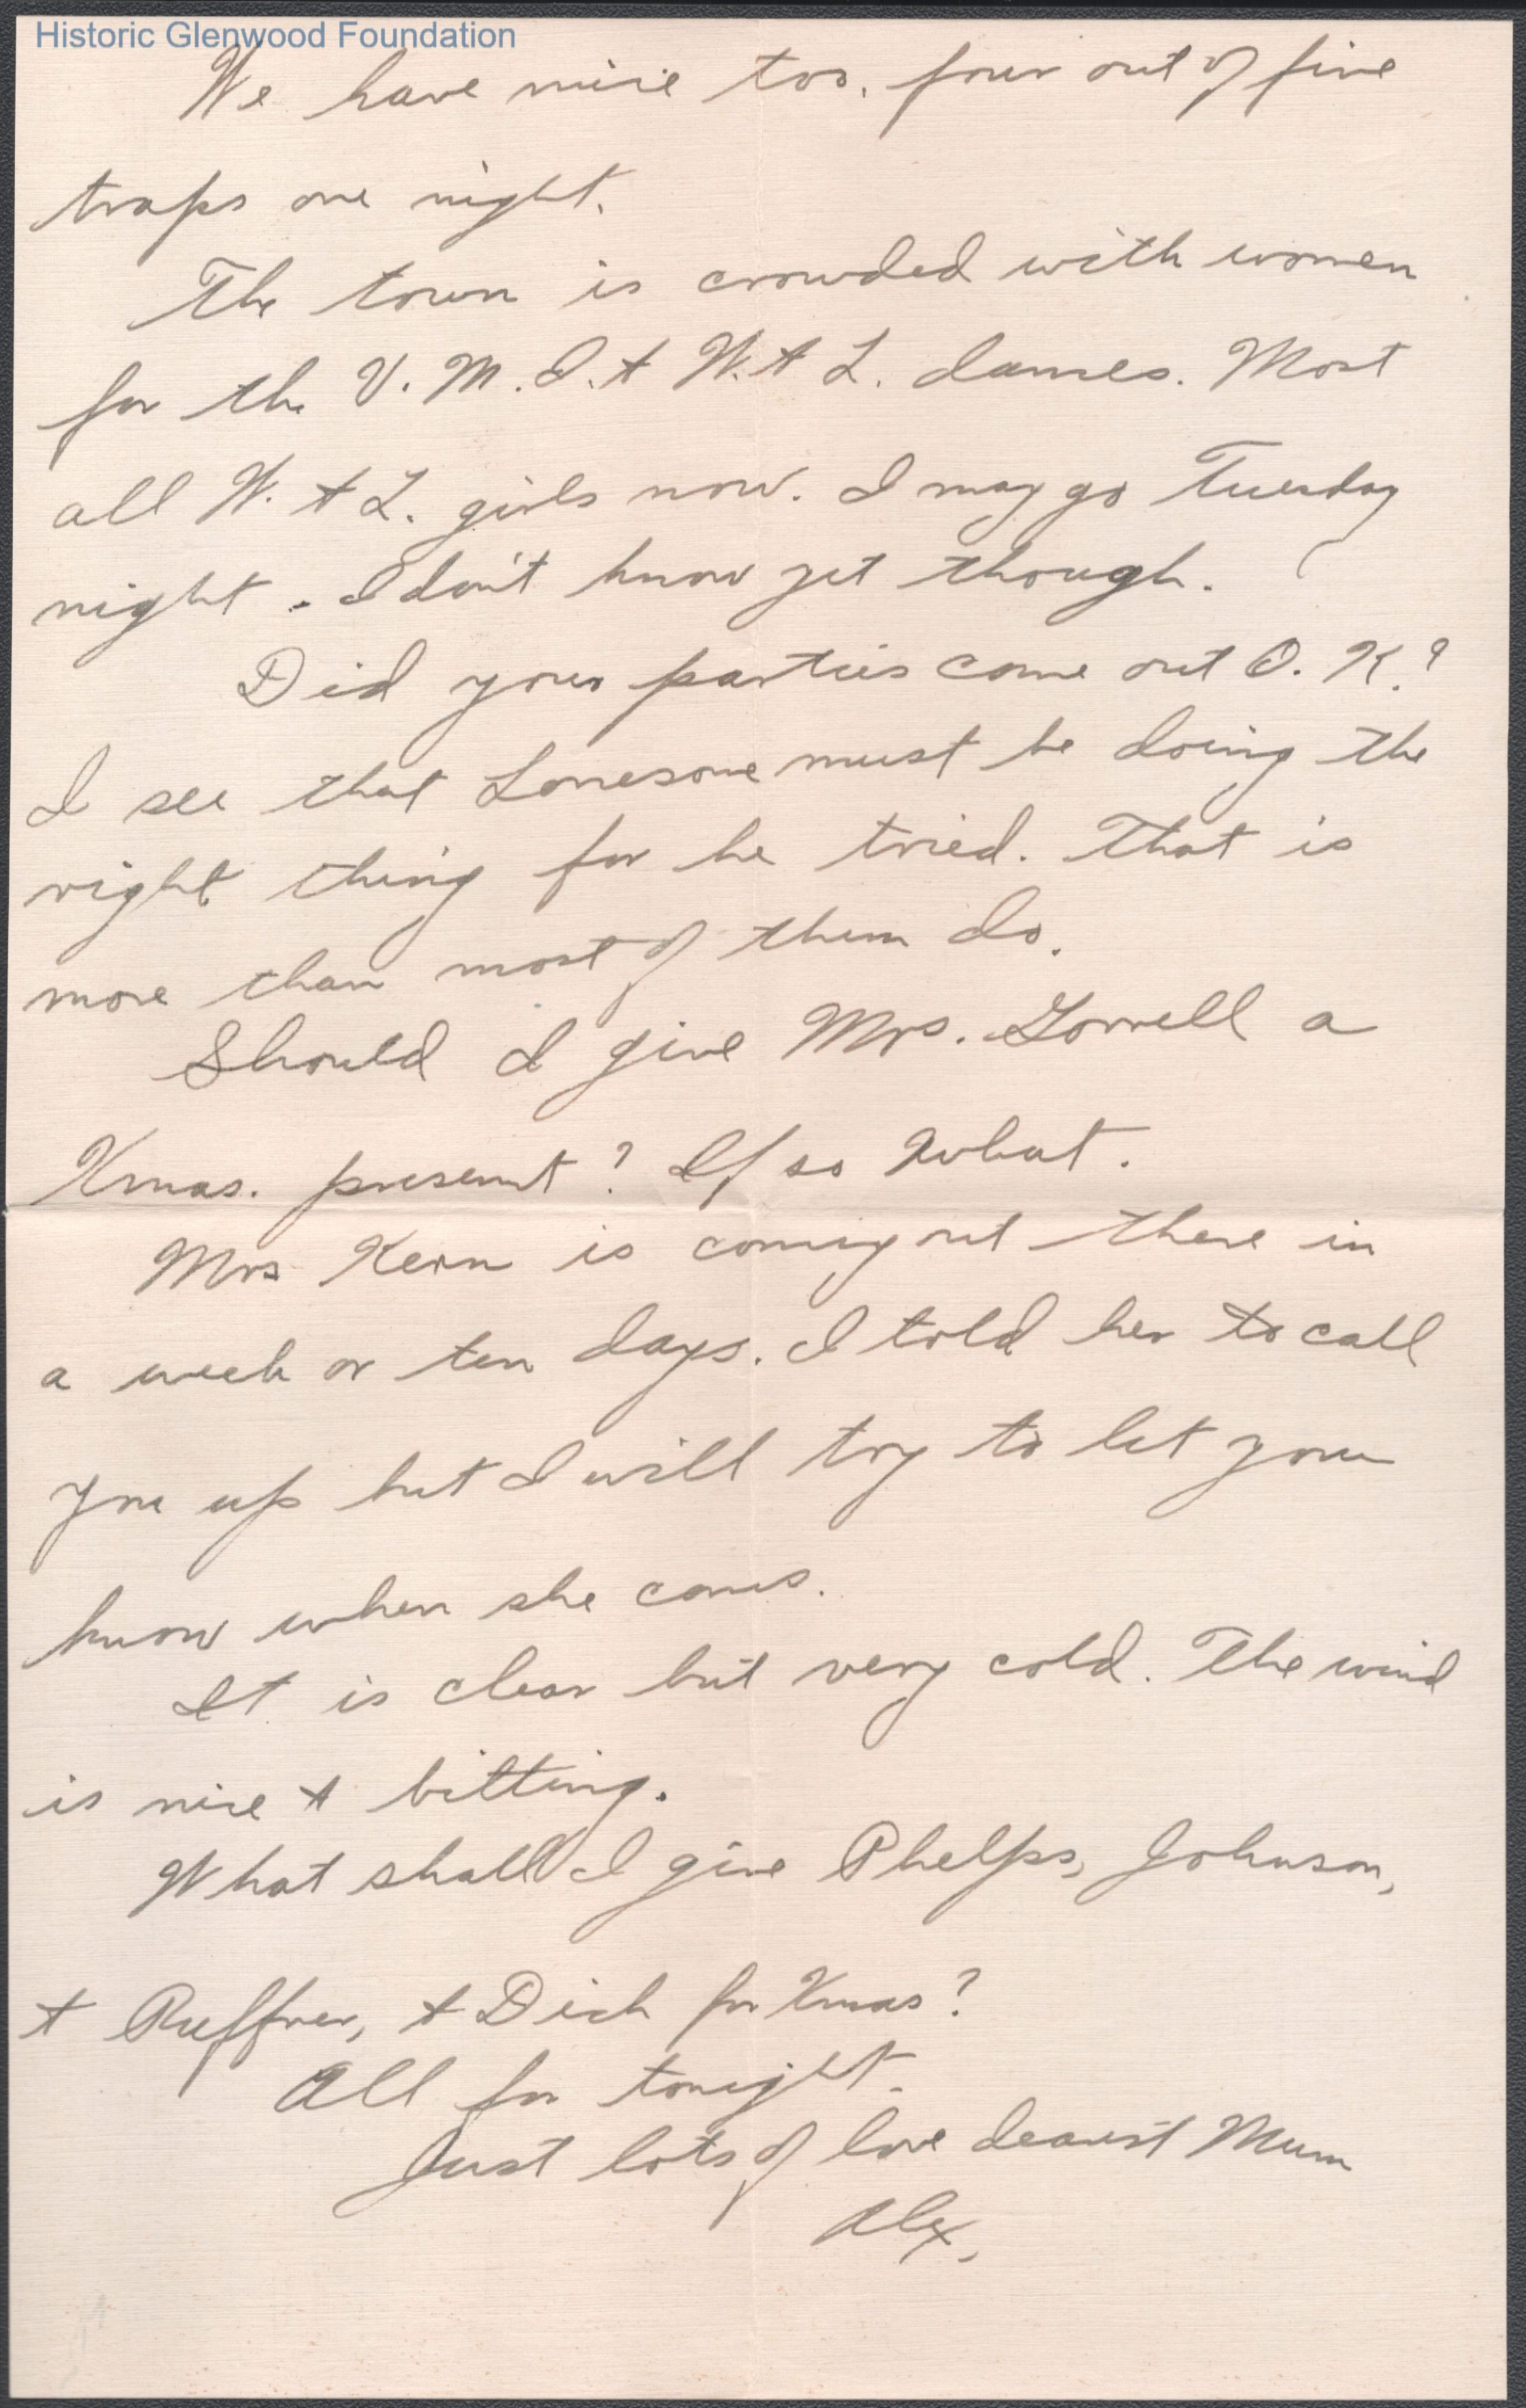 Historic Glenwood Foundation
We have mice too, four out of five
traps one night.
The town is crowded with women
for the V. M. I. + W. + L. dances. Most
all W. + L. girls now. I may go Tuesday
night. I don't know yet though.
Did your parties come out O. K.?
I see that Lonesome must be doing the
right thing for he tried. That is
more than most of them do.
Should I give Mrs. Gorrell a
Xmas. present? If so what.
Mrs Kern is coming out there in
a week or ten days. I told her to call
you up but I will try to let you
know when she comes.
It is clear but very cold. The wind
is nice + bitting.
What shall I give Phelps, Johnson,
+ Ruffner, + Dick for Xmas?
All for tonight.
Just lots of love dearest Mum
Alex,